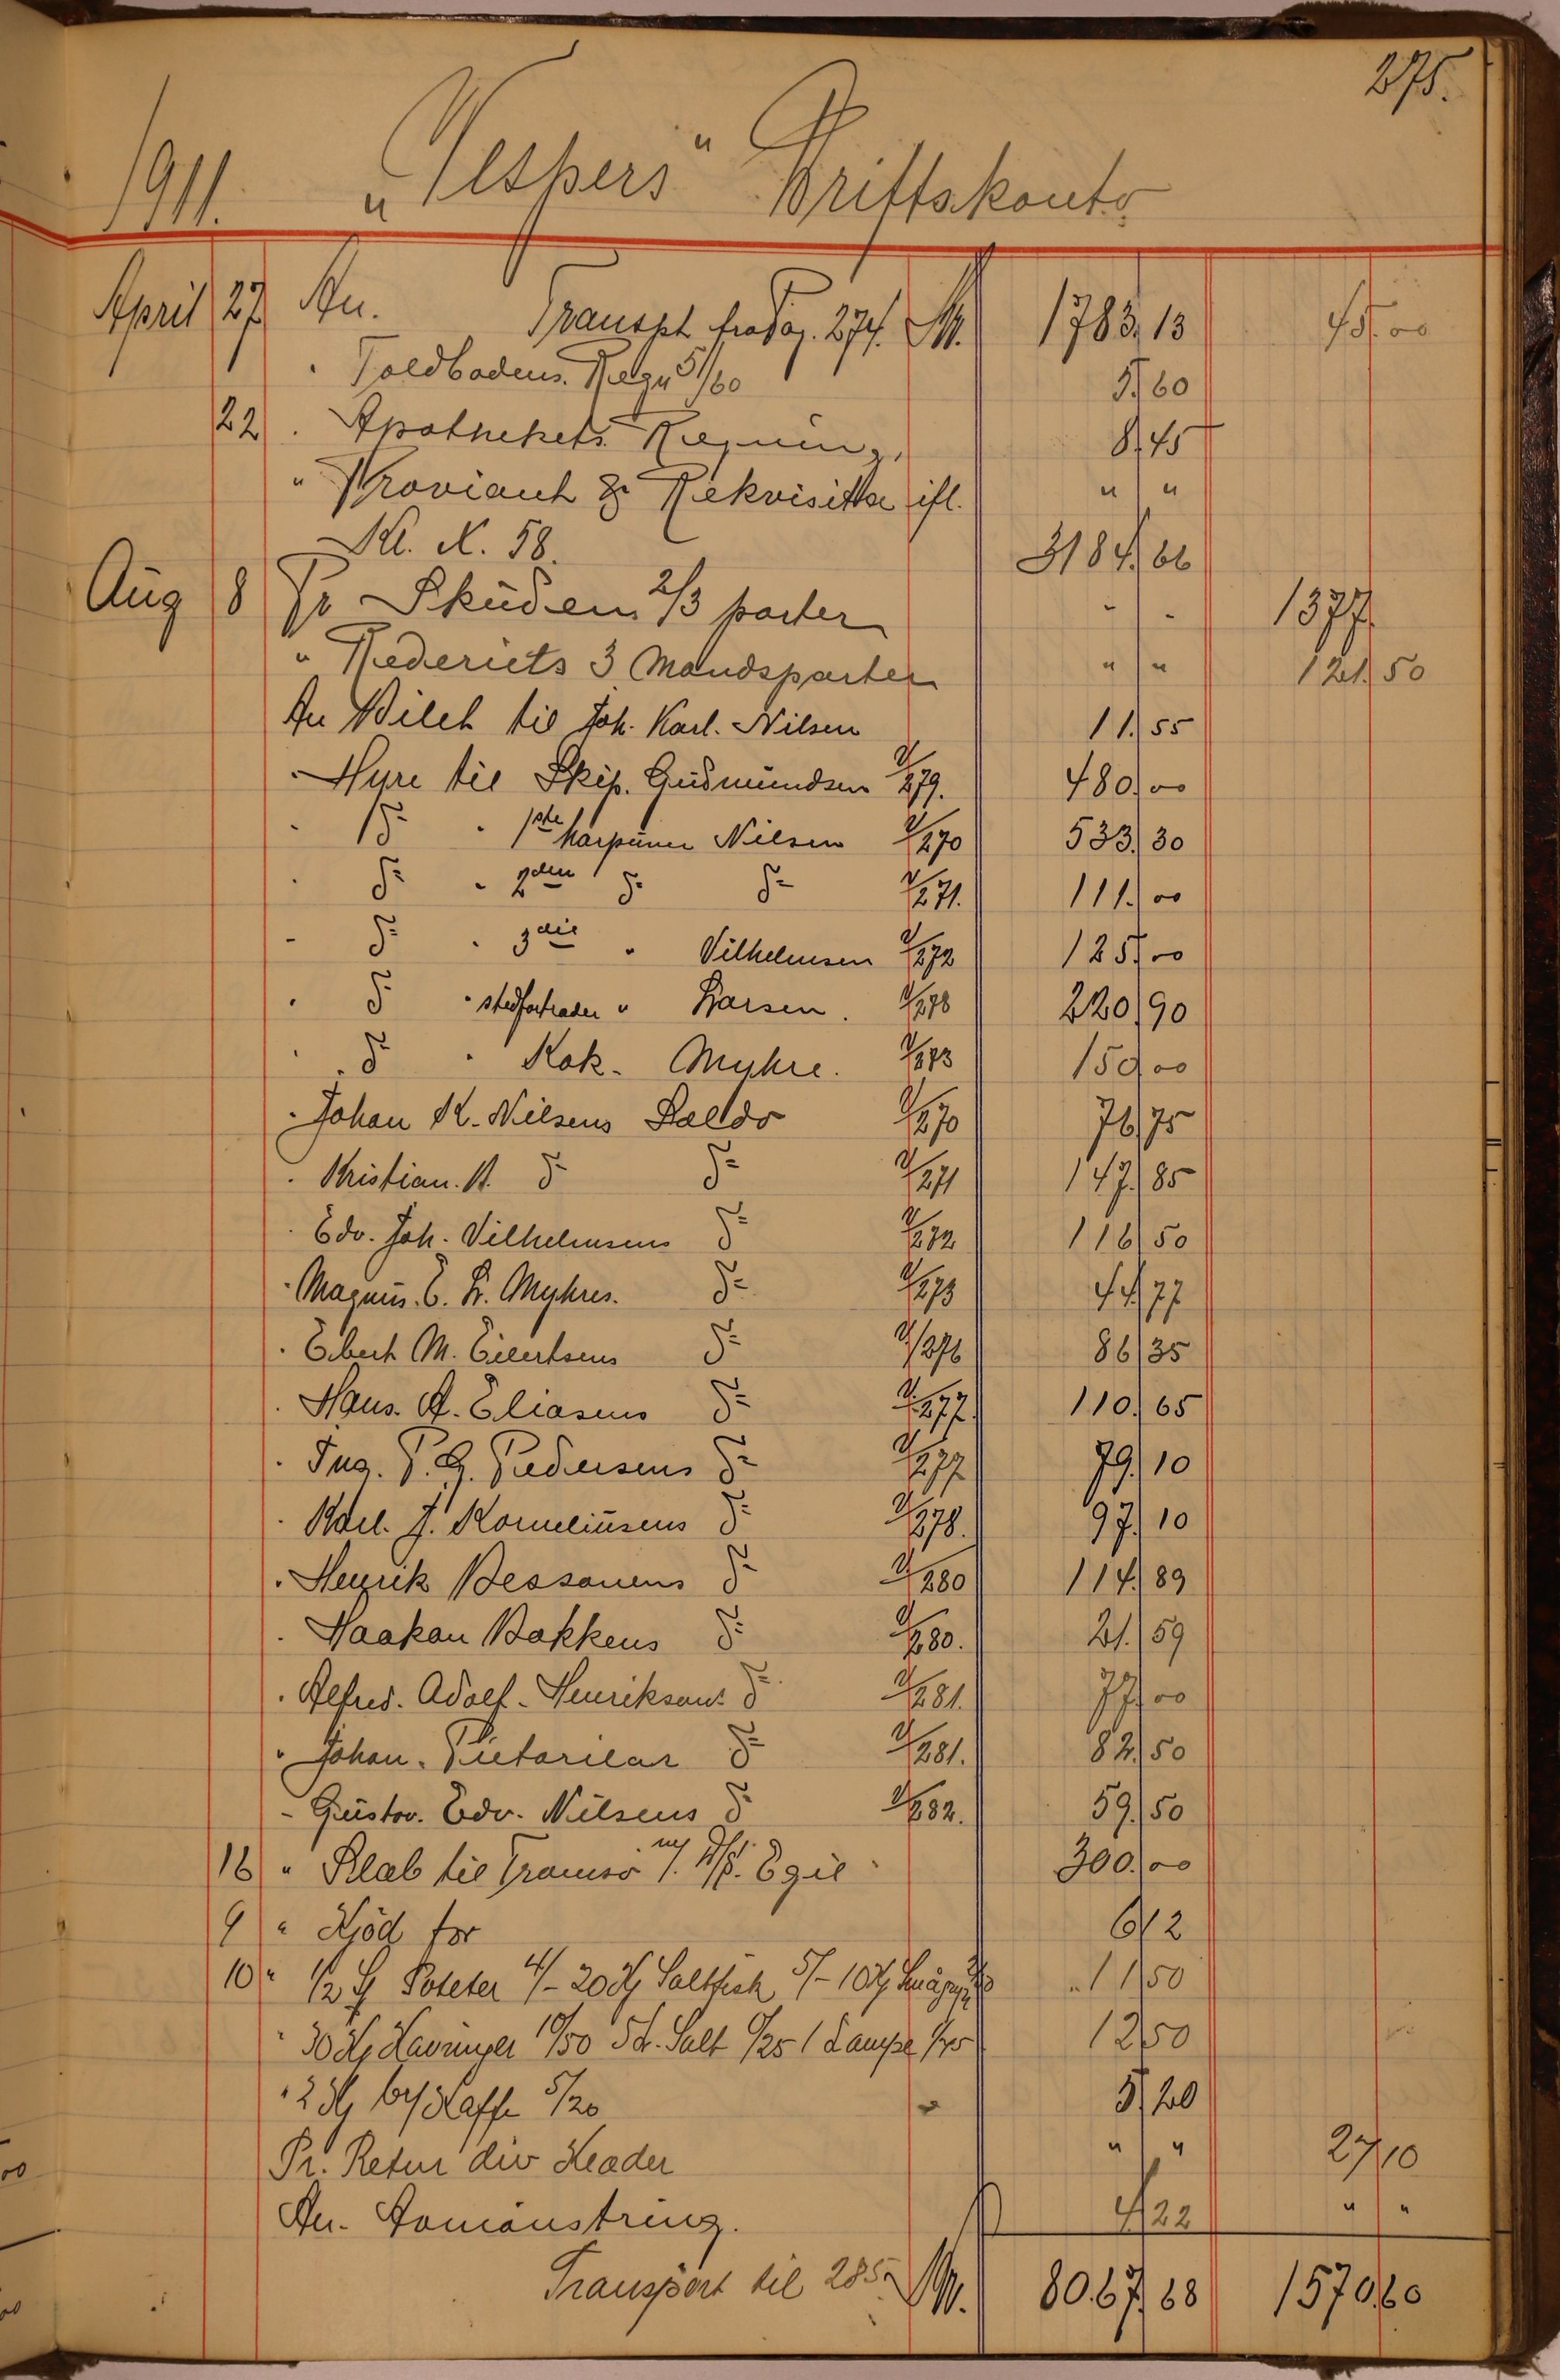 275.
1911. „Vespers" Driftskonto
April 27 An. Transpt fra Pag. 274. Kr. 1783.13 45.00
. Toldbodens. Regn 5/60 5.60
22 . Apothekets Regning, 8.45
" Proviant & Rekvisitter ifl. " "
Kl. N. 58. 3184.66
Aug 8 Pr Skuden 2/3 parter - - 1377.
" Rederiets 3 Mandsparter " " 121.50
An Bilet til Joh. Karl. Nilsen 11.55
. Hyre til Skip. Gudmundsen 279. 480.00
. Do . 1ste harpuner Nilsen 270 533.30
. Do . 2den Do Do 271. 111.00
- Do . 3die . Vilhelmsen 272 125.00
. Do . stedfortræder " Larsen. 278 220.90
. Do . Kok. Myhre. 273 150.00
. Johan K. Nilsens Saldo 270 76.75
. Kristian. A. Do Do 271 147.85
. Edv. Joh. Vilhelmsens Do 272 116.50
. Magnus. E. L. Myhres. Do 273 44.77
. Ebert M. Eilertsens Do 276 86.35
. Hans. A. Eliasens Do 277. 110.65
. Ing. P. G. Pedersens Do 277 79.10
. Karl. J. Korneliusens Do 278. 97.10
. Henrik Bessouens Do 280 114.89
. Haakon Bakkens Do 280. 21.59
. Alfred. Adolf. Henriksons Do 281. 77.00
" Johan. Pietarilas Do 281. 82.50
- Gustav. Edv. Nilsens Do 282. 59.50
16 " Slæb til Tromsö m/. D/S. Egil 300.00
9 " Kjöd for 6.12
10 " 1/2 Poteter 4/- 20 Kg Saltfisk 5/- 10 Kg 11.50
" 30 Kg Kavringer 10/50 Salt 0/25 1 Lampe 1/75 12.50
" 2 Kg Kaffe 5/20 5.20
Pr. Retur div Klæder " " 27.10
An. Avmönstring. 4.22 " "
Transport til 285 Kr. 8067.68 1570.60